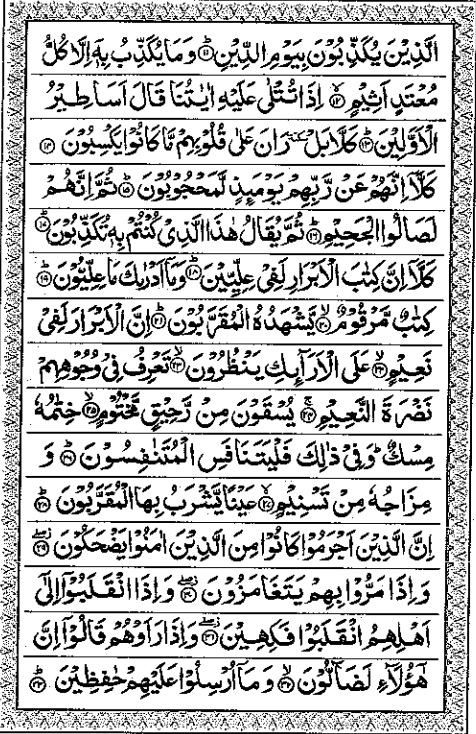 الَّذِيْنَ يُكَذِّبُوْنَ بِيَوْمِ الدِّيْنِ ۝۱۱ وَمَا يُكَذِّبُ بِهٖۤ اِلَّا كُلُّ
مُعْتَدٍ اَثِيْمٍ ۝۱۲ اِذَا تُتْلٰى عَلَيْهِ اٰيٰتُنَا قَالَ اَسَاطِيْرُ
الْاَوَّلِيْنَ ۝۱۳ كَلَّا بَلْ سكتة رَانَ عَلٰى قُلُوْبِهِمْ مَّا كَانُوْا يَكْسِبُوْنَ ۝۱۴
كَلَّاۤ اِنَّهُمْ عَنْ رَّبِّهِمْ يَوْمَىِٕذٍ لَّمَحْجُوْبُوْنَ ۝۱۵ ثُمَّ اِنَّهُمْ
لَصَالُوا الْجَحِيْمِ ۝۱۶ ثُمَّ يُقَالُ هٰذَا الَّذِيْ كُنْتُمْ بِهٖ تُكَذِّبُوْنَ ۝۱۷
كَلَّاۤ اِنَّ كِتٰبَ الْاَبْرَارِ لَفِيْ عِلِّيِّيْنَ ۝۱۸ وَمَاۤ اَدْرٰىكَ مَا عِلِّيُّوْنَ ۝۱۹
كِتٰبٌ مَّرْقُوْمٌ ۝۲۰ يَّشْهَدُهُ الْمُقَرَّبُوْنَ ۝۲۱ اِنَّ الْاَبْرَارَ لَفِيْ
نَعِيْمٍ ۝۲۲ عَلَى الْاَرَآىِٕكِ يَنْظُرُوْنَ ۝۲۳ تَعْرِفُ فِيْ وُجُوْهِهِمْ
نَضْرَةَ النَّعِيْمِ ۝۲۴ يُسْقَوْنَ مِنْ رَّحِيْقٍ مَّخْتُوْمٍ ۝۲۵ خِتٰمُهٗ
مِسْكٌ ؕ وَفِيْ ذٰلِكَ فَلْيَتَنَافَسِ الْمُتَنٰفِسُوْنَ ۝۲۶ وَ
مِزَاجُهٗ مِنْ تَسْنِيْمٍ ۝۲۷ عَيْنًا يَّشْرَبُ بِهَا الْمُقَرَّبُوْنَ ۝۲۸
اِنَّ الَّذِيْنَ اَجْرَمُوْا كَانُوْا مِنَ الَّذِيْنَ اٰمَنُوْا يَضْحَكُوْنَ ۝۲۹
وَاِذَا مَرُّوْا بِهِمْ يَتَغَامَزُوْنَ ۝۳۰ وَاِذَا انْقَلَبُوْۤا اِلٰۤى
اَهْلِهِمُ انْقَلَبُوْا فَكِهِيْنَ ۝۳۱ وَاِذَا رَاَوْهُمْ قَالُوْۤا اِنَّ
هٰۤؤُلَآءِ لَضَآلُّوْنَ ۝۳۲ وَمَاۤ اُرْسِلُوْا عَلَيْهِمْ حٰفِظِيْنَ ۝۳۳